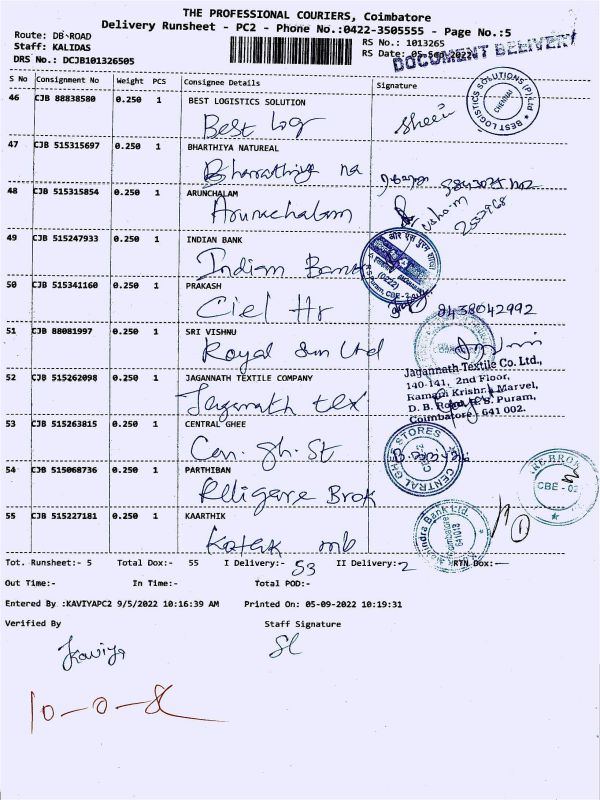 THE PROFESSIONAL COURIERS, Coimbatore
Delivery Runsheet - PC2 - Phone No.:0422-3505555 - Page No.:5
Route: DB ROAD
RS No.: 1013265
Staff: KALIDAS
RS Date: 05-Sep-2022
DOCUMENT DELIVERY
DRS No.: DCJB101326505
S No Consignment No Weight PCS Consignee Details Signature
46 CJB 88838580 0.250 1 BEST LOGISTICS SOLUTION
Best Log
BEST LOGISTICS SOLUTIONS (P) Ltd
CHENNAI
47 CJB 515315697 0.250 1 BHARTHIYA NATUREAL
Bharathiya na
48 CJB 515315854 0.250 1 ARUNCHALAM
Arunachalam
49 CJB 515247933 0.250 1 INDIAN BANK
Indian Bank
50 CJB 515341160 0.250 1 PRAKASH
Ciel Hr
8438042992
51 CJB 88081997 0.250 1 SRI VISHNU
Royal Sun Utd
Jagannath Textile Co. Ltd.,
140-141, 2nd Floor,
Ramani Krishna Marvel,
D. B. Road, R. S. Puram,
Coimbatore - 641 002.
52 CJB 515262098 0.250 1 JAGANNATH TEXTILE COMPANY
Jaganath tex
53 CJB 515263815 0.250 1 CENTRAL GHEE
Cen. gh. St
CENTRAL GHEE STORES
54 CJB 515068736 0.250 1 PARTHIBAN
Relligare Brok
CBE - 02
55 CJB 515227181 0.250 1 KAARTHIK
Kotak mb
Mahindra Bank Ltd.
1
Tot. Runsheet:- 5 Total Dox:- 55 I Delivery:- 53 II Delivery:- 2 RTN Dox:-
Out Time:- In Time:- Total POD:-
Entered By :KAVIYAPC2 9/5/2022 10:16:39 AM Printed On: 05-09-2022 10:19:31
Verified By Staff Signature
Kaviya
10-0-